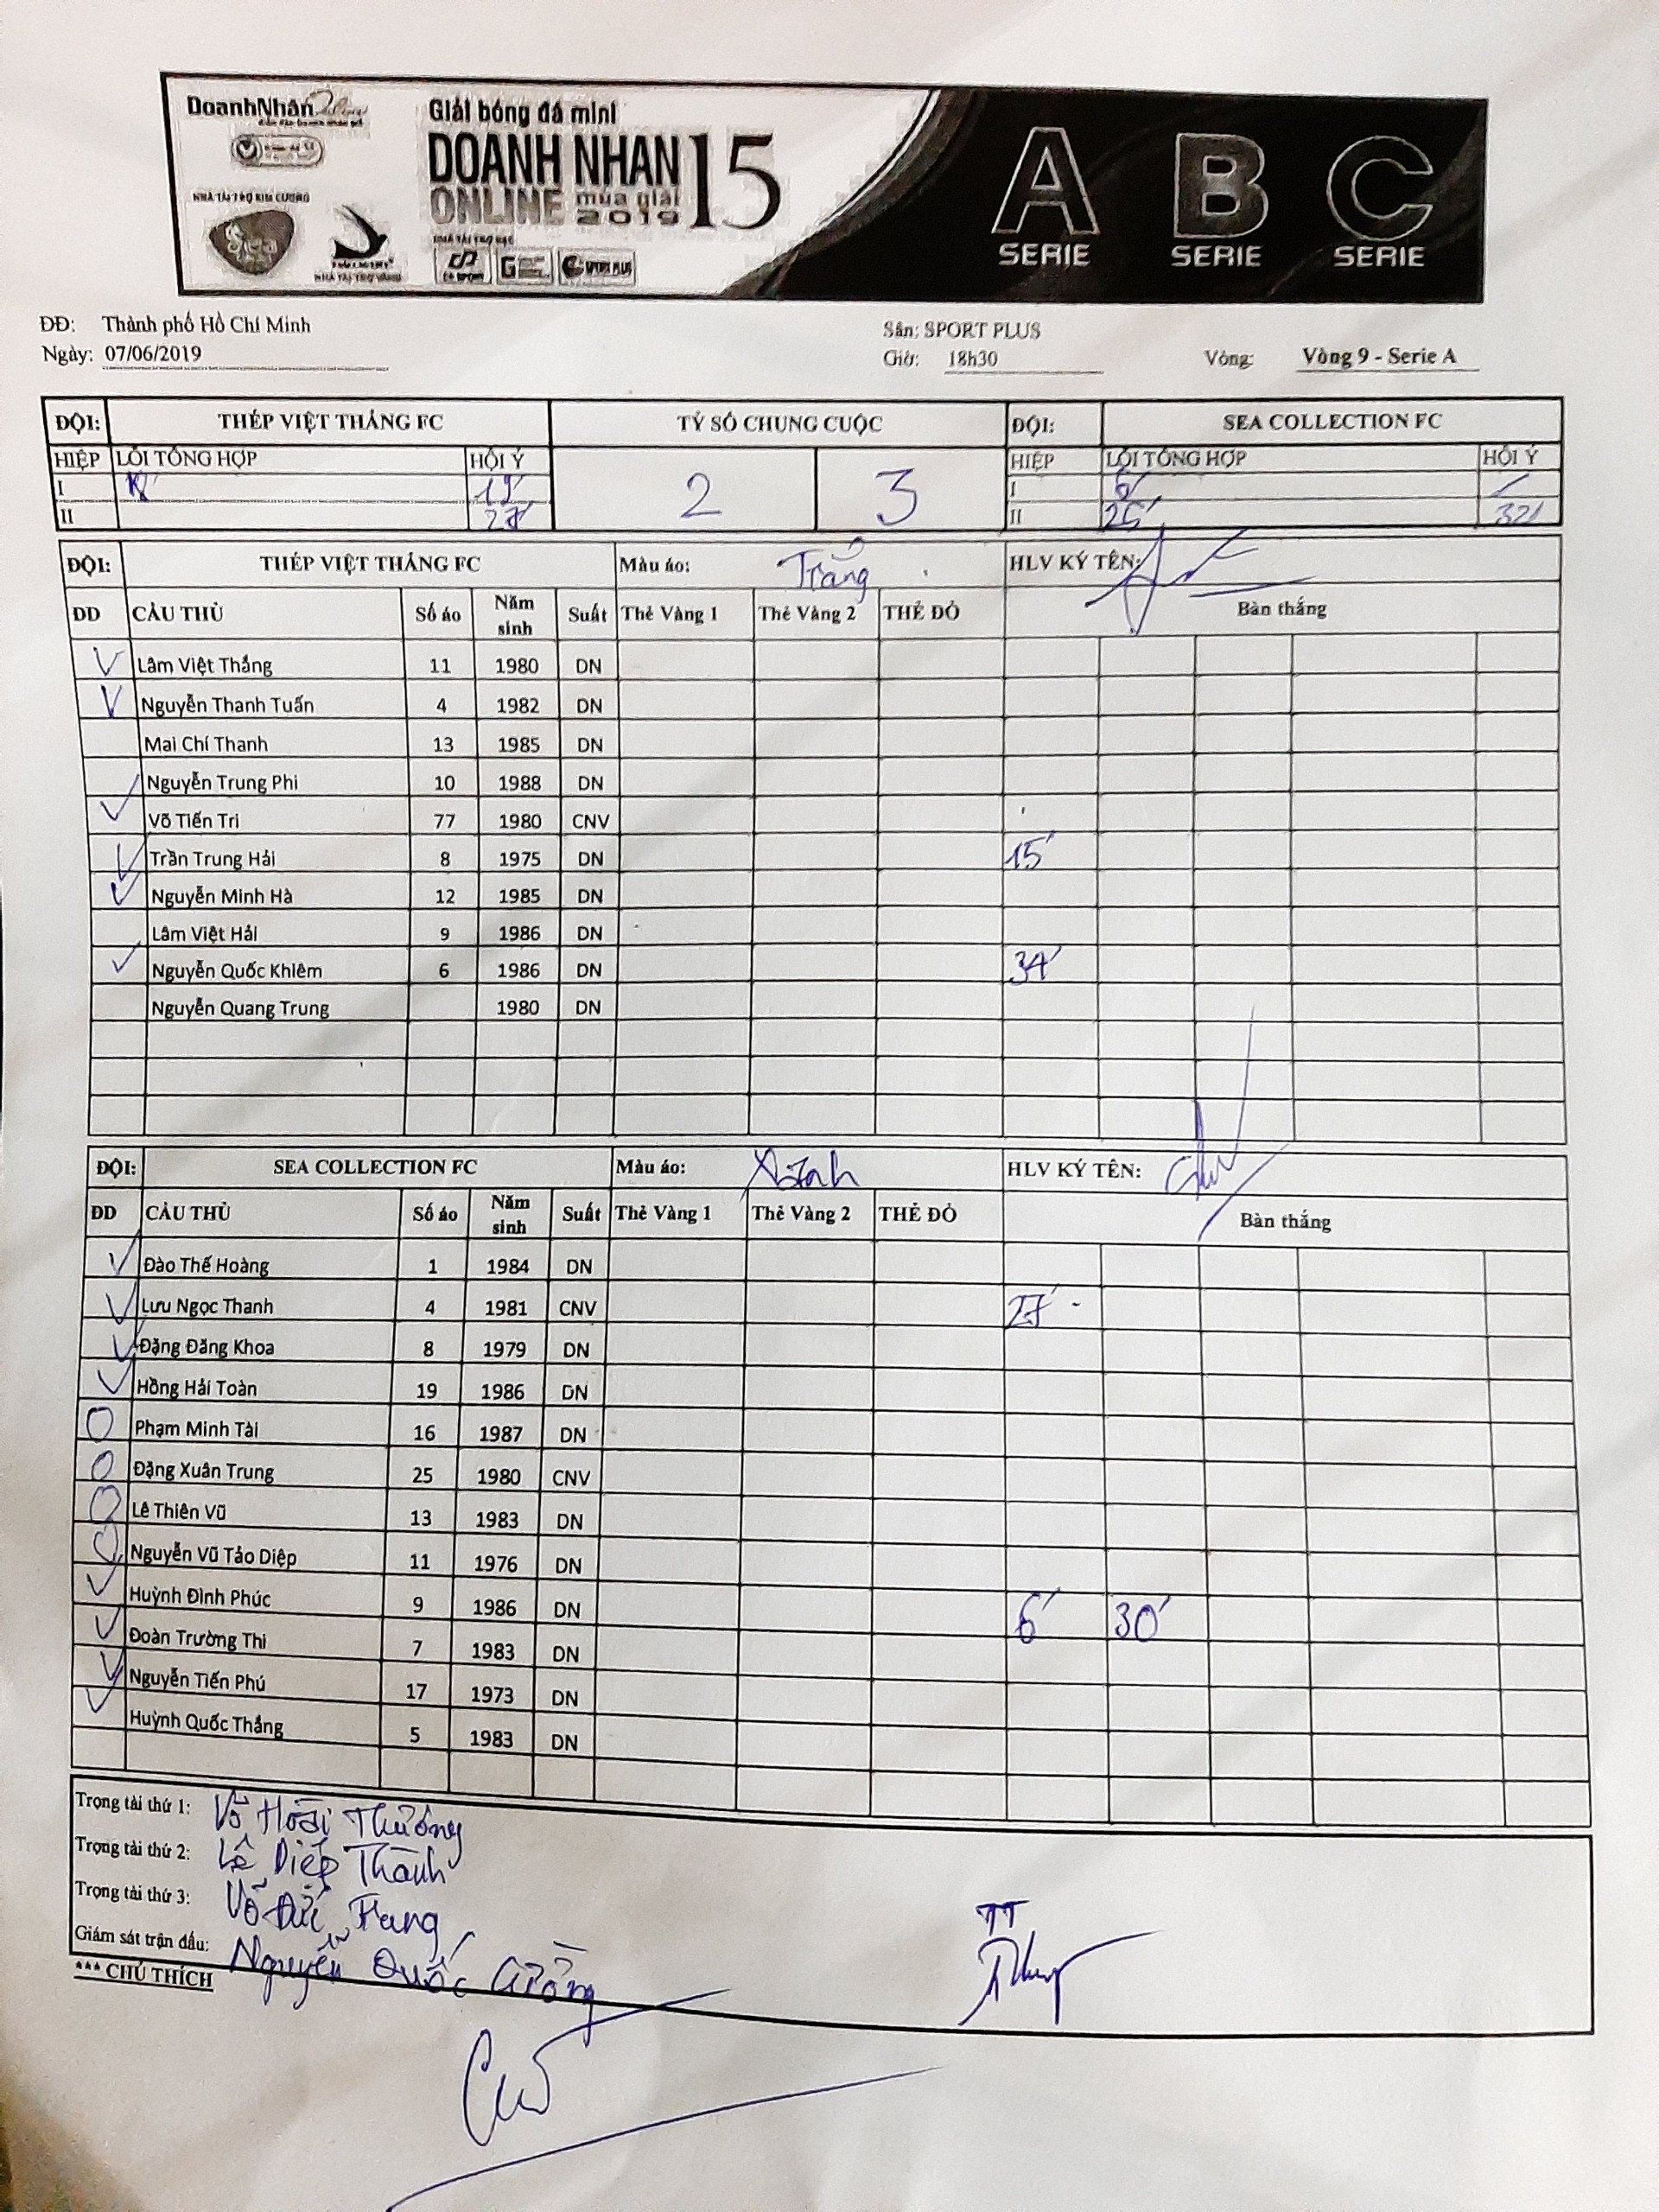 DoanhNhân
Giải bóng đá mini
DOANH NHAN 15
ONLINE mùa giải 2019
NHÀ TÀI TRỢ KIM CƯƠNG
NHÀ TÀI TRỢ VÀNG
NHÀ TÀI TRỢ BẠC
SPORT PLUS
A B C
SERIE SERIE SERIE
ĐĐ: Thành phố Hồ Chí Minh Sân: SPORT PLUS
Ngày: 07/06/2019 Giờ: 18h30 Vòng: Vòng 9 - Serie A
ĐỘI: THÉP VIỆT THẮNG FC TỶ SỐ CHUNG CUỘC ĐỘI: SEA COLLECTION FC
HIỆP LỖI TỔNG HỢP HỘI Ý 2 3 HIỆP LỖI TỔNG HỢP HỘI Ý
I I
II II
ĐỘI: THÉP VIỆT THẮNG FC Màu áo: Trắng HLV KÝ TÊN:
ĐD CẦU THỦ Số áo Năm sinh Suất Thẻ Vàng 1 Thẻ Vàng 2 THẺ ĐỎ Bàn thắng
Lâm Việt Thắng 11 1980 DN
Nguyễn Thanh Tuấn 4 1982 DN
Mai Chí Thanh 13 1985 DN
Nguyễn Trung Phi 10 1988 DN
Võ Tiến Tri 77 1980 CNV
Trần Trung Hải 8 1975 DN 15'
Nguyễn Minh Hà 12 1985 DN
Lâm Việt Hải 9 1986 DN
Nguyễn Quốc Khiêm 6 1986 DN 34'
Nguyễn Quang Trung 1980 DN
ĐỘI: SEA COLLECTION FC Màu áo: Xanh HLV KÝ TÊN:
ĐD CẦU THỦ Số áo Năm sinh Suất Thẻ Vàng 1 Thẻ Vàng 2 THẺ ĐỎ Bàn thắng
Đào Thế Hoàng 1 1984 DN
Lưu Ngọc Thanh 4 1981 CNV 27'
Đặng Đăng Khoa 8 1979 DN
Hồng Hải Toàn 19 1986 DN
Phạm Minh Tài 16 1987 DN
Đặng Xuân Trung 25 1980 CNV
Lê Thiên Vũ 13 1983 DN
Nguyễn Vũ Tảo Diệp 11 1976 DN
Huỳnh Đình Phúc 9 1986 DN 6' 30'
Đoàn Trường Thi 7 1983 DN
Nguyễn Tiến Phú 17 1973 DN
Huỳnh Quốc Thắng 5 1983 DN
Trọng tài thứ 1: Võ Hoài Thương
Trọng tài thứ 2: Lê Diệp Thành
Trọng tài thứ 3: Võ Đức Trang
Giám sát trận đấu: Nguyễn Quốc Cường
TT
*** CHÚ THÍCH